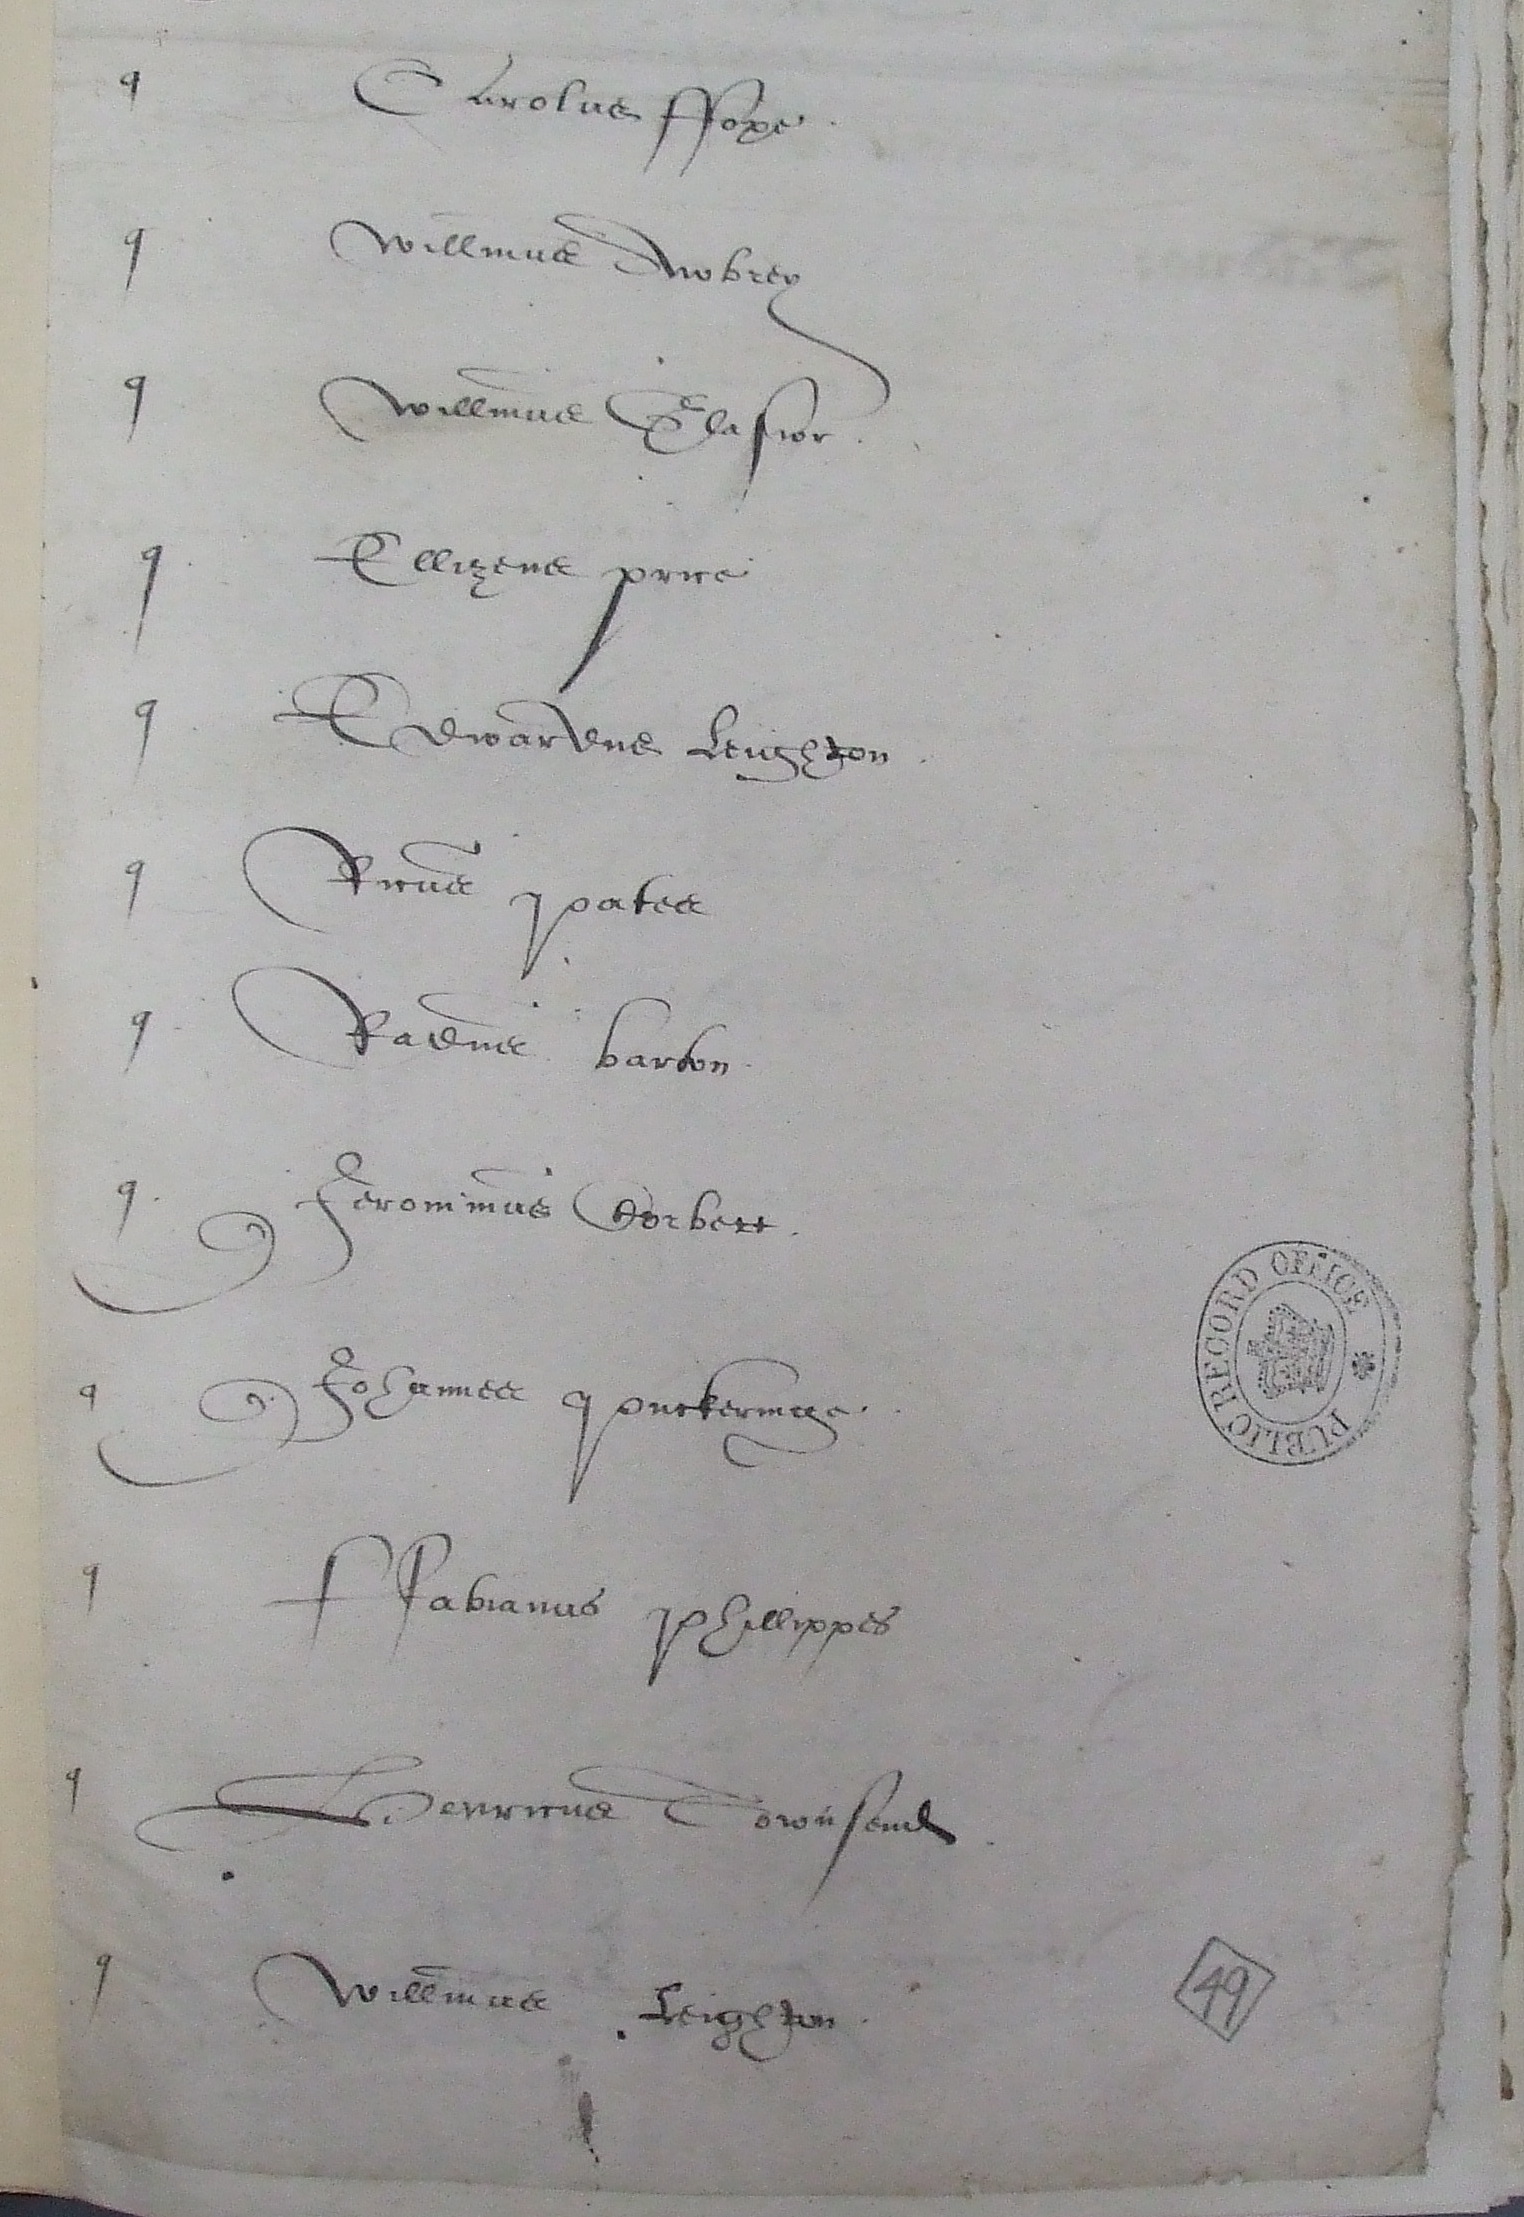 q Carolus ffoxe
q Willmus Awbrey
q Willmus Glasior
q Ellizeus price
q Edwardus Leighton
q Ricus pates
q Radus barton
q Jeronimus Corbett
q Johannes puckeringe
q ffabianus phillippes
q Henricus Townsend
q Willmus Leighton
PUBLIC RECORD OFFICE
49